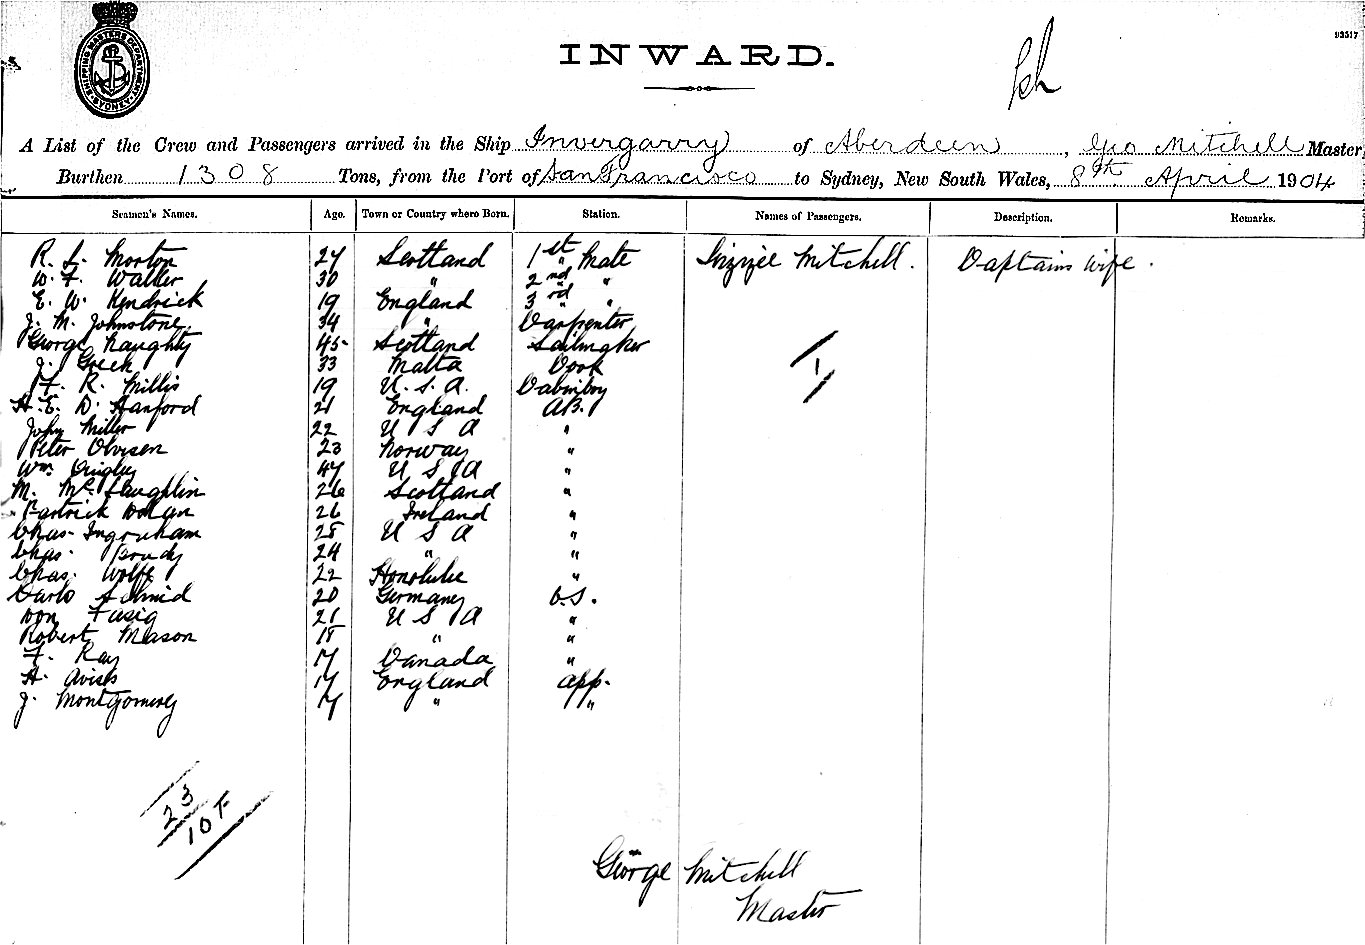 SHIPPING MASTERS DEPARTMENT SYDNEY
93517
INWARD.
A List of the Crew and Passengers arrived in the Ship Invergarry of Aberdeen, Geo Mitchell Master
Burthen 1308 Tons, from the Port of San Francisco to Sydney, New South Wales, 8th April 1904
Seamen's Names. Age. Town or Country where Born. Station. Names of Passengers. Description. Remarks.
R. L. Morton 27 Scotland 1st Mate Lizzie Mitchell. Captains wife.
W. F. Walker 30 " 2nd "
E. W. Kendrick 19 England 3rd "
J. M. Johnstone 34 " Carpenter
George Naughty 45 Scotland Sailmaker
J. Grech 33 Malta Cook
F. R. Millis 19 U.S.A. Cabinboy
H. E. D. Hanford 21 England AB.
John Miller 22 U S A "
Peter Olvisen 23 Norway "
Wm 47 U S A "
M. McLaughlin 26 Scotland "
Partrick Dolan 26 Ireland "
Chas. Ingraham 28 U S A "
Chas. 24 " "
Chas. Wolfe 22 Honolulu "
Carlo Schmid 20 Germany O.S.
Don Fasig 21 U S A "
Robert Mason 18 " "
F. Ray 17 Canada "
H. Avis 17 England App.
J. Montgomery 17 " "
1
23
10 F
George Mitchell
Master